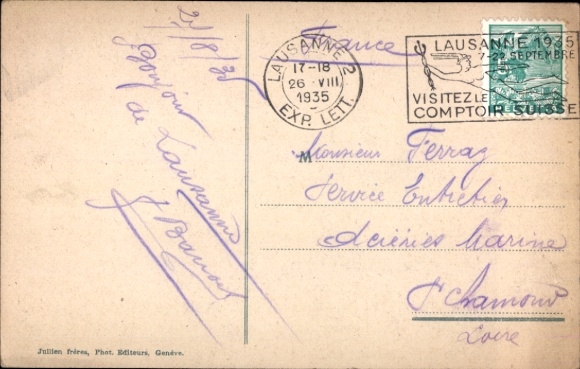 25/8/35
Bonjour
de Lausanne
France
LAUSANNE 2
17-18
26 VIII
1935
EXP. LETT.
LAUSANNE 1935
7-22 SEPTEMBRE
VISITEZ LE
COMPTOIR SUISSE
Monsieur Ferraz
Service Entretien
Aciéries Marine
St Chamond
Loire
Jullien frères, Phot. Editeurs, Genève.